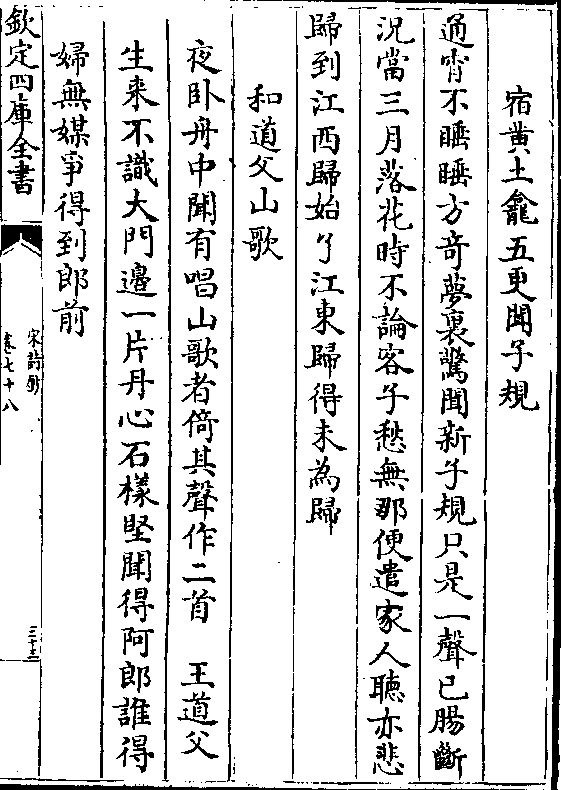 宿黄土龕五更聞子規
通宵不睡睡方竒夢裏驚聞新子規只是一聲已腸斷
況當三月落花時不論客子愁無那便遣家人聽亦悲
歸到江西歸始了江東歸得未為歸
和道父山歌
夜卧舟中聞有唱山歌者倚其聲作二首　王道父
生来不識大門邊一片丹心石様堅聞得阿郎誰得
婦無媒爭得到郎前
欽定四庫全書
宋詩鈔
卷七十八